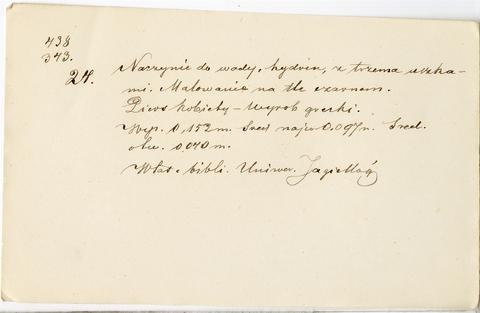 438
343.
24. Naczynie do wody, hydria, z trzema uszka-
mi. Malowanie na tle czarnem.
Pierś kobiety – wyrób grecki.
Wys. 0,152 m. Śred najw 0.097 m. Śred.
otw. 0.070 m.
Włas. bibli. Uniwer. Jagiellog